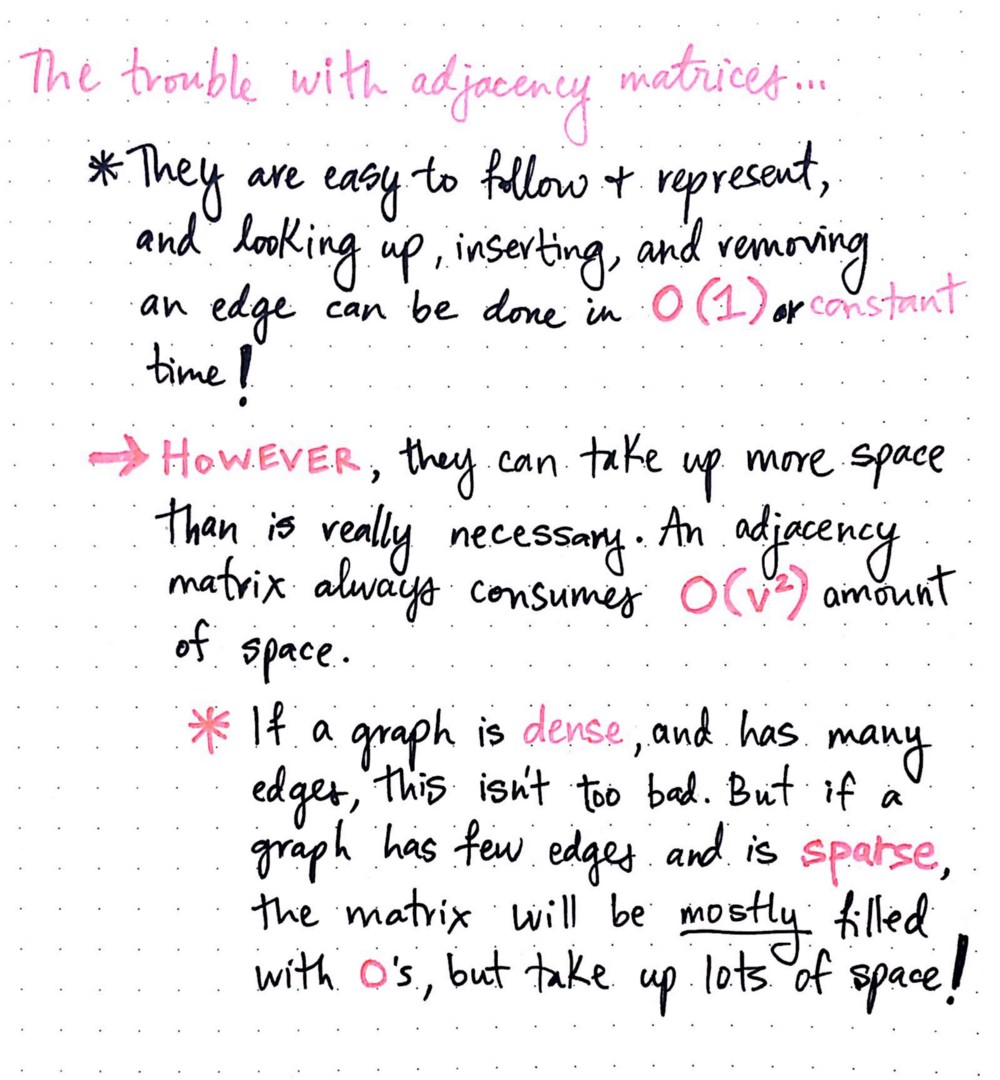 The trouble with adjacency matrices...
* They are easy to follow + represent,
and looking up, inserting, and removing
an edge can be done in O(1) or constant
time!
→ HOWEVER, they can take up more space
than is really necessary. An adjacency
matrix always consumes O(v²) amount
of space.
* If a graph is dense, and has many
edges, this isn't too bad. But if a
graph has few edges and is sparse,
the matrix will be mostly filled
with 0's, but take up lots of space!